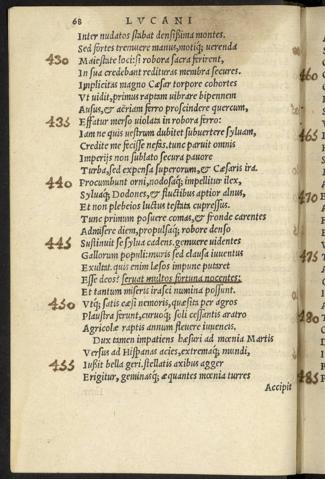 68 LVCANI
Inter nudatos stabat densißima montes.
Sed fortes tremuere manus, motiq; uerenda
430 Maiestate loci si robora sacra ferirent,
In sua credebant redituras membra secures.
Implicitas magno Cæsar torpore cohortes
Vt uidit, primus raptam uibrare bipennem
Ausus, & aëriam ferro proscindere quercum,
435 Effatur merso uiolata in robora ferro:
Iam ne quis uestrum dubitet subuertere syluam,
Credite me fecisse nefas. tunc paruit omnis
Imperijs non sublato secura pauore
Turba, sed expensa superorum, & Cæsaris ira.
440 Procumbunt orni, nodosaq; impellitur ilex,
Syluaq; Dodones, & fluctibus aptior alnus,
Et non plebeios luctus testata cupressus.
Tunc primum posuere comas, & fronde carentes
Admisere diem, propulsaq; robore denso
445 Sustinuit se sylua cadens. gemuere uidentes
Gallorum populi: muris sed clausa iuuentus
Exultat. quis enim læsos impune putaret
Esse deos? seruat multos fortuna nocentes:
Et tantum miseris irasci numina possunt.
450 Vtq; satis cæsi nemoris, quæsita per agros
Plaustra ferunt, curuoq; soli cessantis aratro
Agricolæ raptis annum fleuere iuuencis.
Dux tamen impatiens hæsuri ad mœnia Martis
Versus ad Hispanas acies, extremaq; mundi,
455 Iußit bella geri. stellatis axibus agger
Erigitur, geminasq; æquantes mœnia turres
Accipit
460
465
470
475
480
485